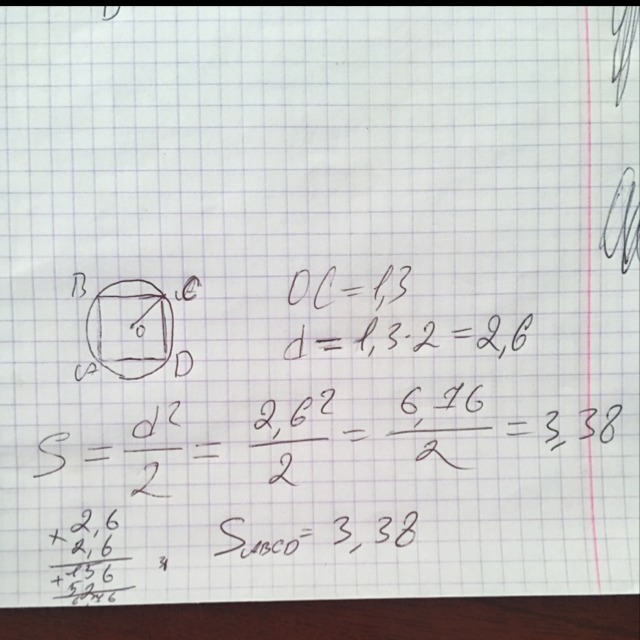 B C
O
A D
OC = 1,3
d = 1,3 · 2 = 2,6
S = d²/2 = 2,6²/2 = 6,76/2 = 3,38
× 2,6
2,6
+ 156
52
6,76
S ABCD = 3,38